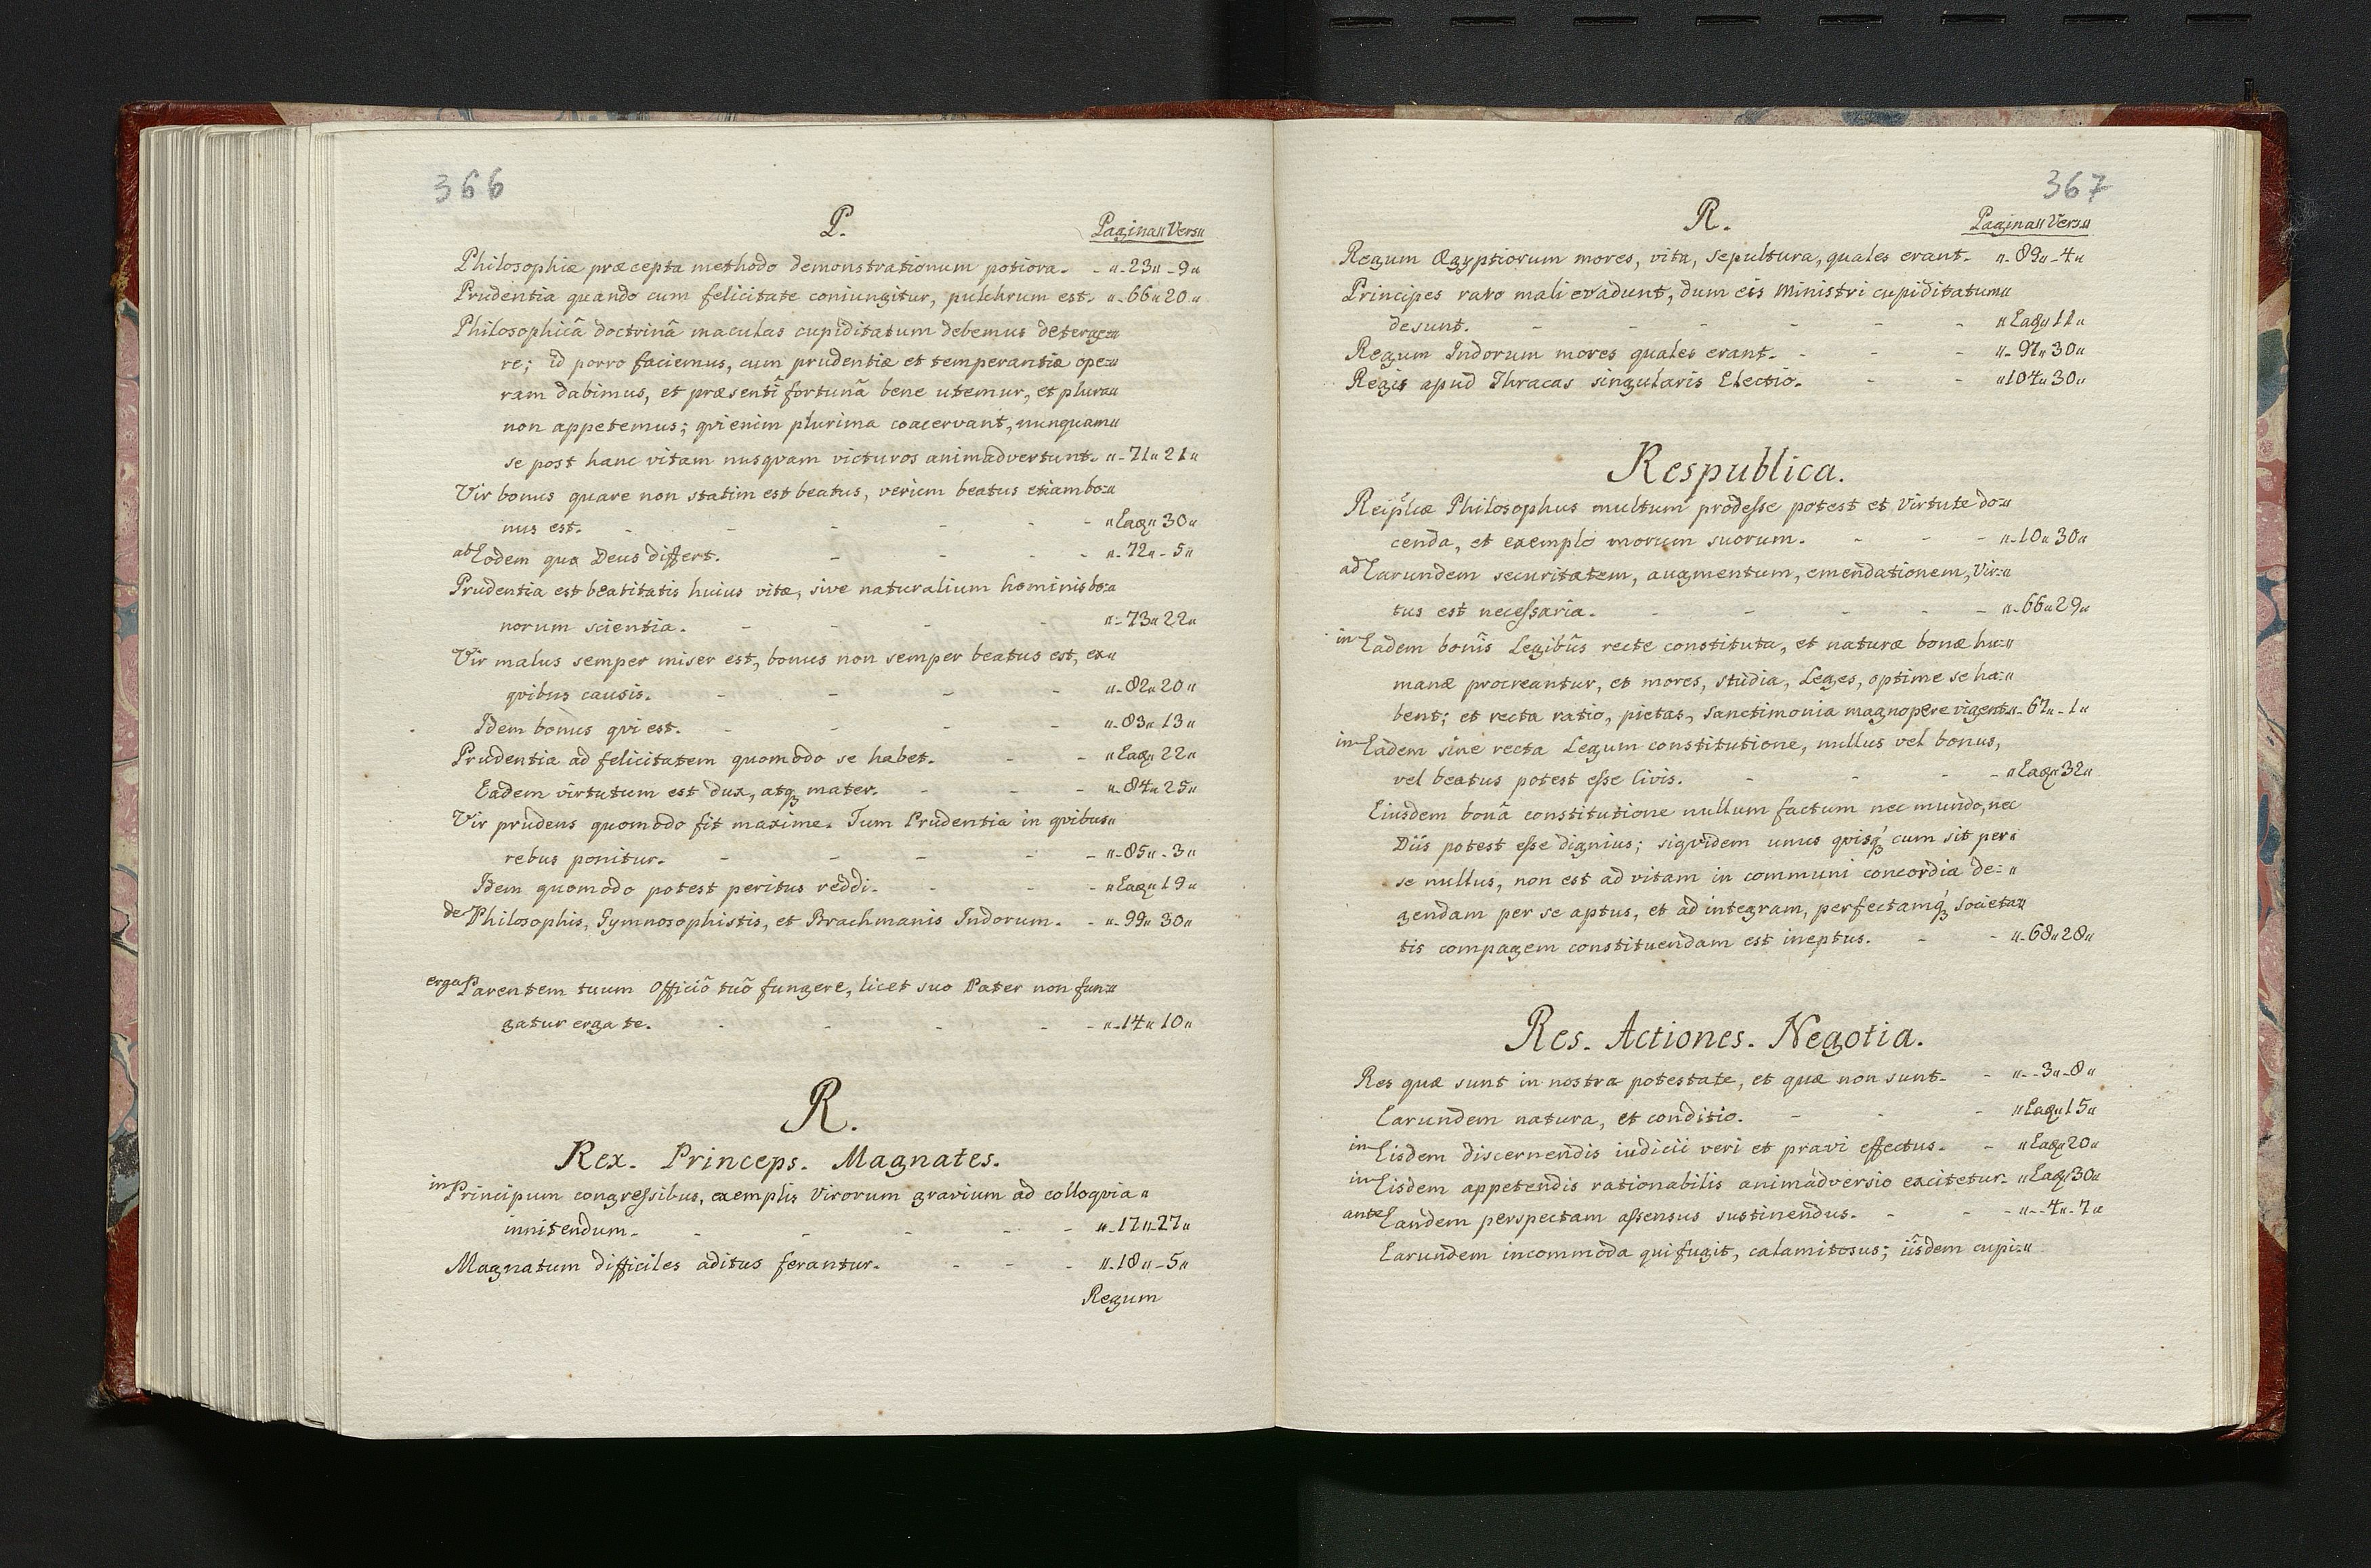 366
P. Pagina〃Vers〃
Philosophiæ præcepta methodo demonstrationum potiora. - 〃-23〃-9〃
Prudentia quando cum felicitate coniungitur, pulchrum est. 〃-66〃20〃
Philosophicâ doctrinâ maculas cupiditatum debemus deterge=〃
re; id porro faciemus, cum prudentiæ et temperantiæ ope=〃
ram dabimus, et præsenti fortunâ bene utemur, et plura〃
non appetemus; qvi enim plurima coacervant, nunquam〃
se post hanc vitam nusqvam victuros animadvertunt. 〃-71〃21〃
Vir bonus quare non statim est beatus, verium beatus etiam bo=〃
nus est. - - - - - 〃Eaq〃30〃
ab Eodem qua Deus differt. - - - 〃-72〃-5〃
Prudentia est beatitatis huius vitæ, sive naturalium hominis bo=〃
norum scientia. - - - - 〃-73〃22〃
Vir malus semper miser est, bonus non semper beatus est, ex〃
qvibus causis. - - - - 〃-82〃20〃
Idem bonus qvi est. - - - - 〃-83〃13〃
Prudentia ad felicitatem quomodo se habet. - - 〃Eaq〃22〃
Eadem virtutum est dux, atqꝫ mater. - - - 〃-84〃25〃
Vir prudens quomodo fit maxime. Tum Prudentia in qvibus〃
rebus ponitur. - - - - - 〃-85〃-3〃
Idem quomodo potest peritus reddi. - - - 〃Eaq〃19〃
de Philosophis, Gymnosophistis, et Brachmanis Indorum. - 〃-99〃30〃
erga Parentem tuum Officiô tuô fungere, licet suo Pater non fun=〃
gatur erga te. - - - - - 〃-14〃10〃
R.
Rex. Princeps. Magnates.
in Principum congressibus, exemplis Virorum gravium ad colloqvia〃
innitendum. - - - - - 〃-17〃-27〃
Magnatum difficiles aditus ferantur. - - - 〃-18〃-5〃
Regum
367
R. Pagina〃Vers〃
Regum Ægyptiorum mores, vita, sepultura, quales erant. 〃-89〃-4〃
Principes raro mali evadunt, dum eis Ministri cupiditatum〃
desunt. - - - - - - 〃Eaq〃11〃
Regum Indorum mores quales erant. - - - 〃-97〃30〃
Regis apud Thracas singularis Electio. - - 〃104〃30〃
Respublica.
Reiplicæ Philosophus multum prodesse potest et Virtute do=〃
cenda, et exemplô morum suorum. - - - 〃-10〃30〃
ad Earundem securitatem, augmentum, emendationem, Vir=〃
tus est necessaria. - - - - - 〃-66〃29〃
in Eadem bonîs Legibûs recte constituta, et naturæ bonæ hu=〃
manæ procreantur, et mores, studia, Leges, optime se ha=〃
bent; et recta ratio, pietas, sanctimonia magnopere vigent 〃-67〃-1〃
in Eadem sine recta Legum constitutione, nullus vel bonus,
vel beatus potest esse Civis. - - - - 〃Eaq〃32〃
Eiusdem bonâ constitutione nullum factum nec mundo, nec
Diis potest esse dignius; siqvidem unus qvisqꝫ cum sit per〃
se nullus, non est ad vitam in communi concordia de=〃
gendam per se aptus, et ad integram, perfectamqꝫ societa=〃
tis compagem constituendam est ineptus. - - 〃-68〃28〃
Res. Actiones. Negotia.
Res quæ sunt in nostra potestate, et quæ non sunt. - 〃--3〃-8〃
Earundem natura, et conditio. - - - 〃Eaq〃15〃
in Eisdem discernendis iudicii veri et pravi effectus. - 〃Eaq〃20〃
in Eisdem appetendis rationabilis animadversio excitetur. 〃Eaq〃30〃
ante Eandem perspectam assensus sustinendus. - - - 〃--4〃-7〃
Earundem incommoda qui fugit, calamitosus; iisdem cupi=〃